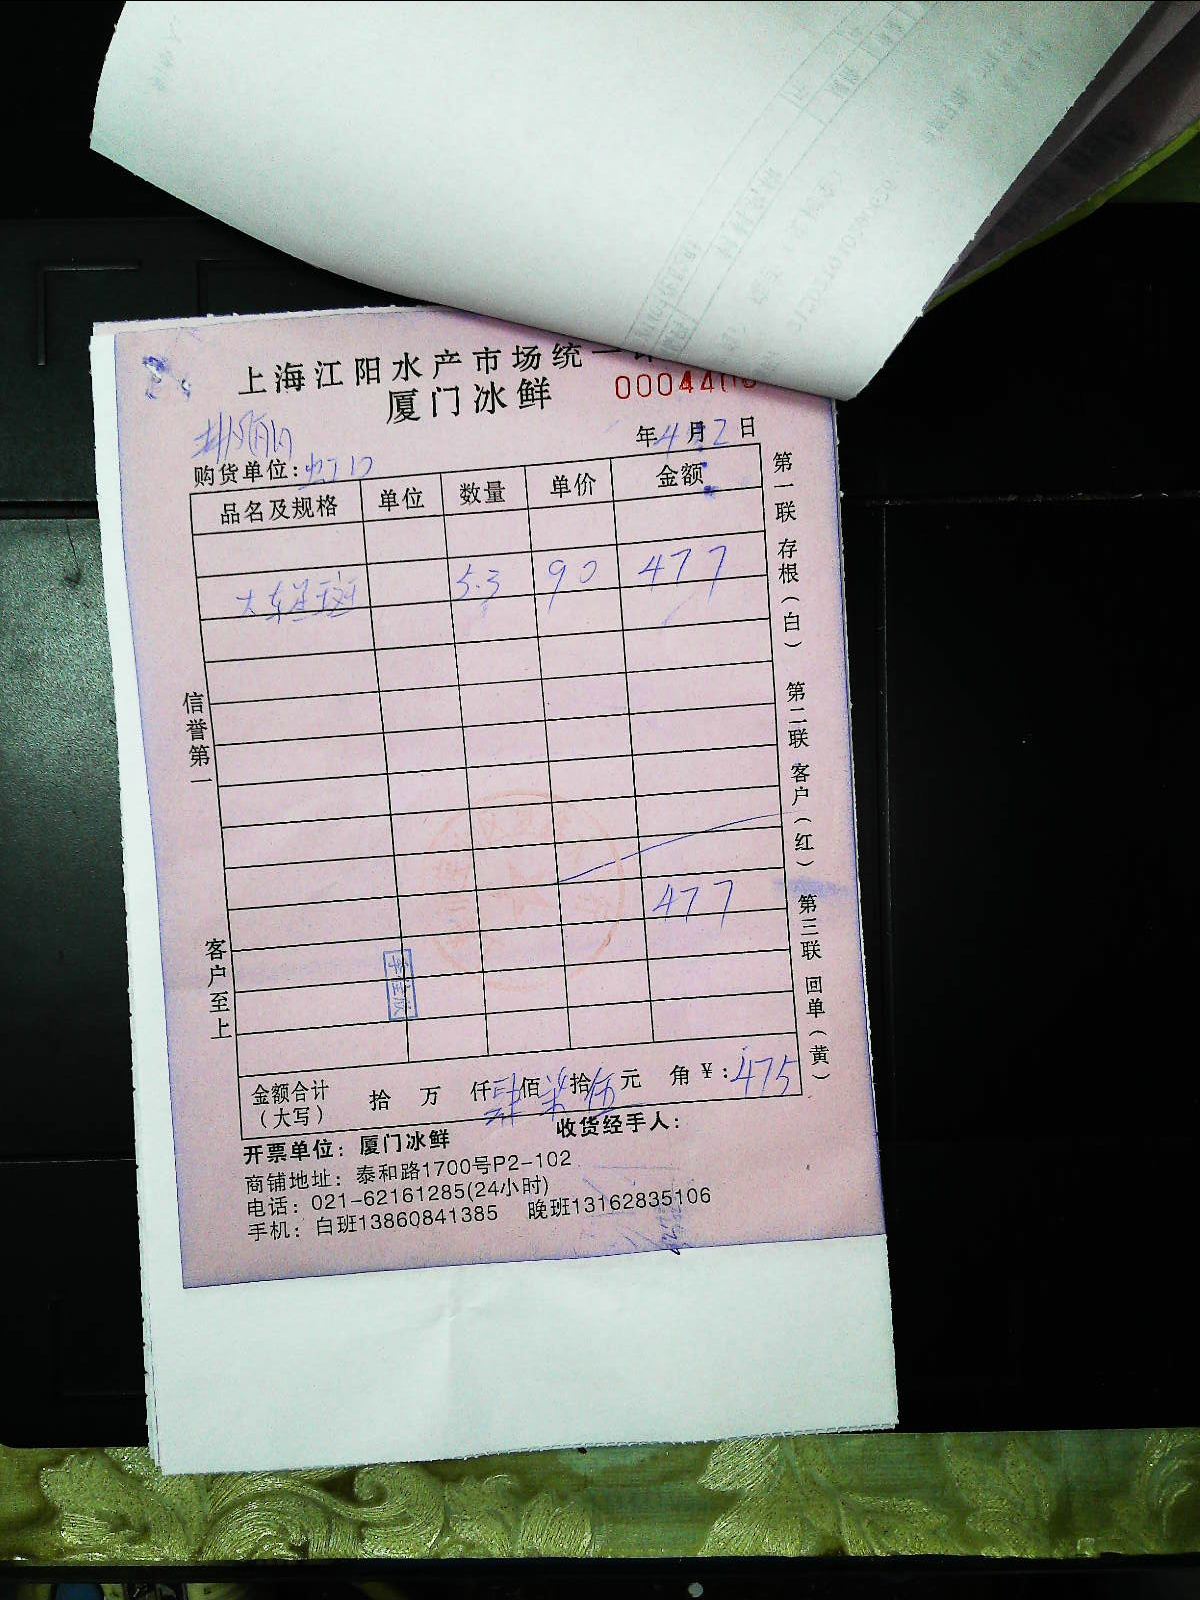 上海江阳水产市场统一
厦门冰鲜
000440
年4月2日
购货单位：虹口
品名及规格 单位 数量 单价 金额
大东星斑 5.3 90 477
477
金额合计（大写） 拾 万 仟肆佰柒拾伍元 角 ¥：475
开票单位：厦门冰鲜 收货经手人：
商铺地址：泰和路1700号P2-102
电话：021-62161285(24小时)
手机：白班13860841385 晚班13162835106
信誉第一
客户至上
第一联 存根（白）
第二联 客户（红）
第三联 回单（黄）